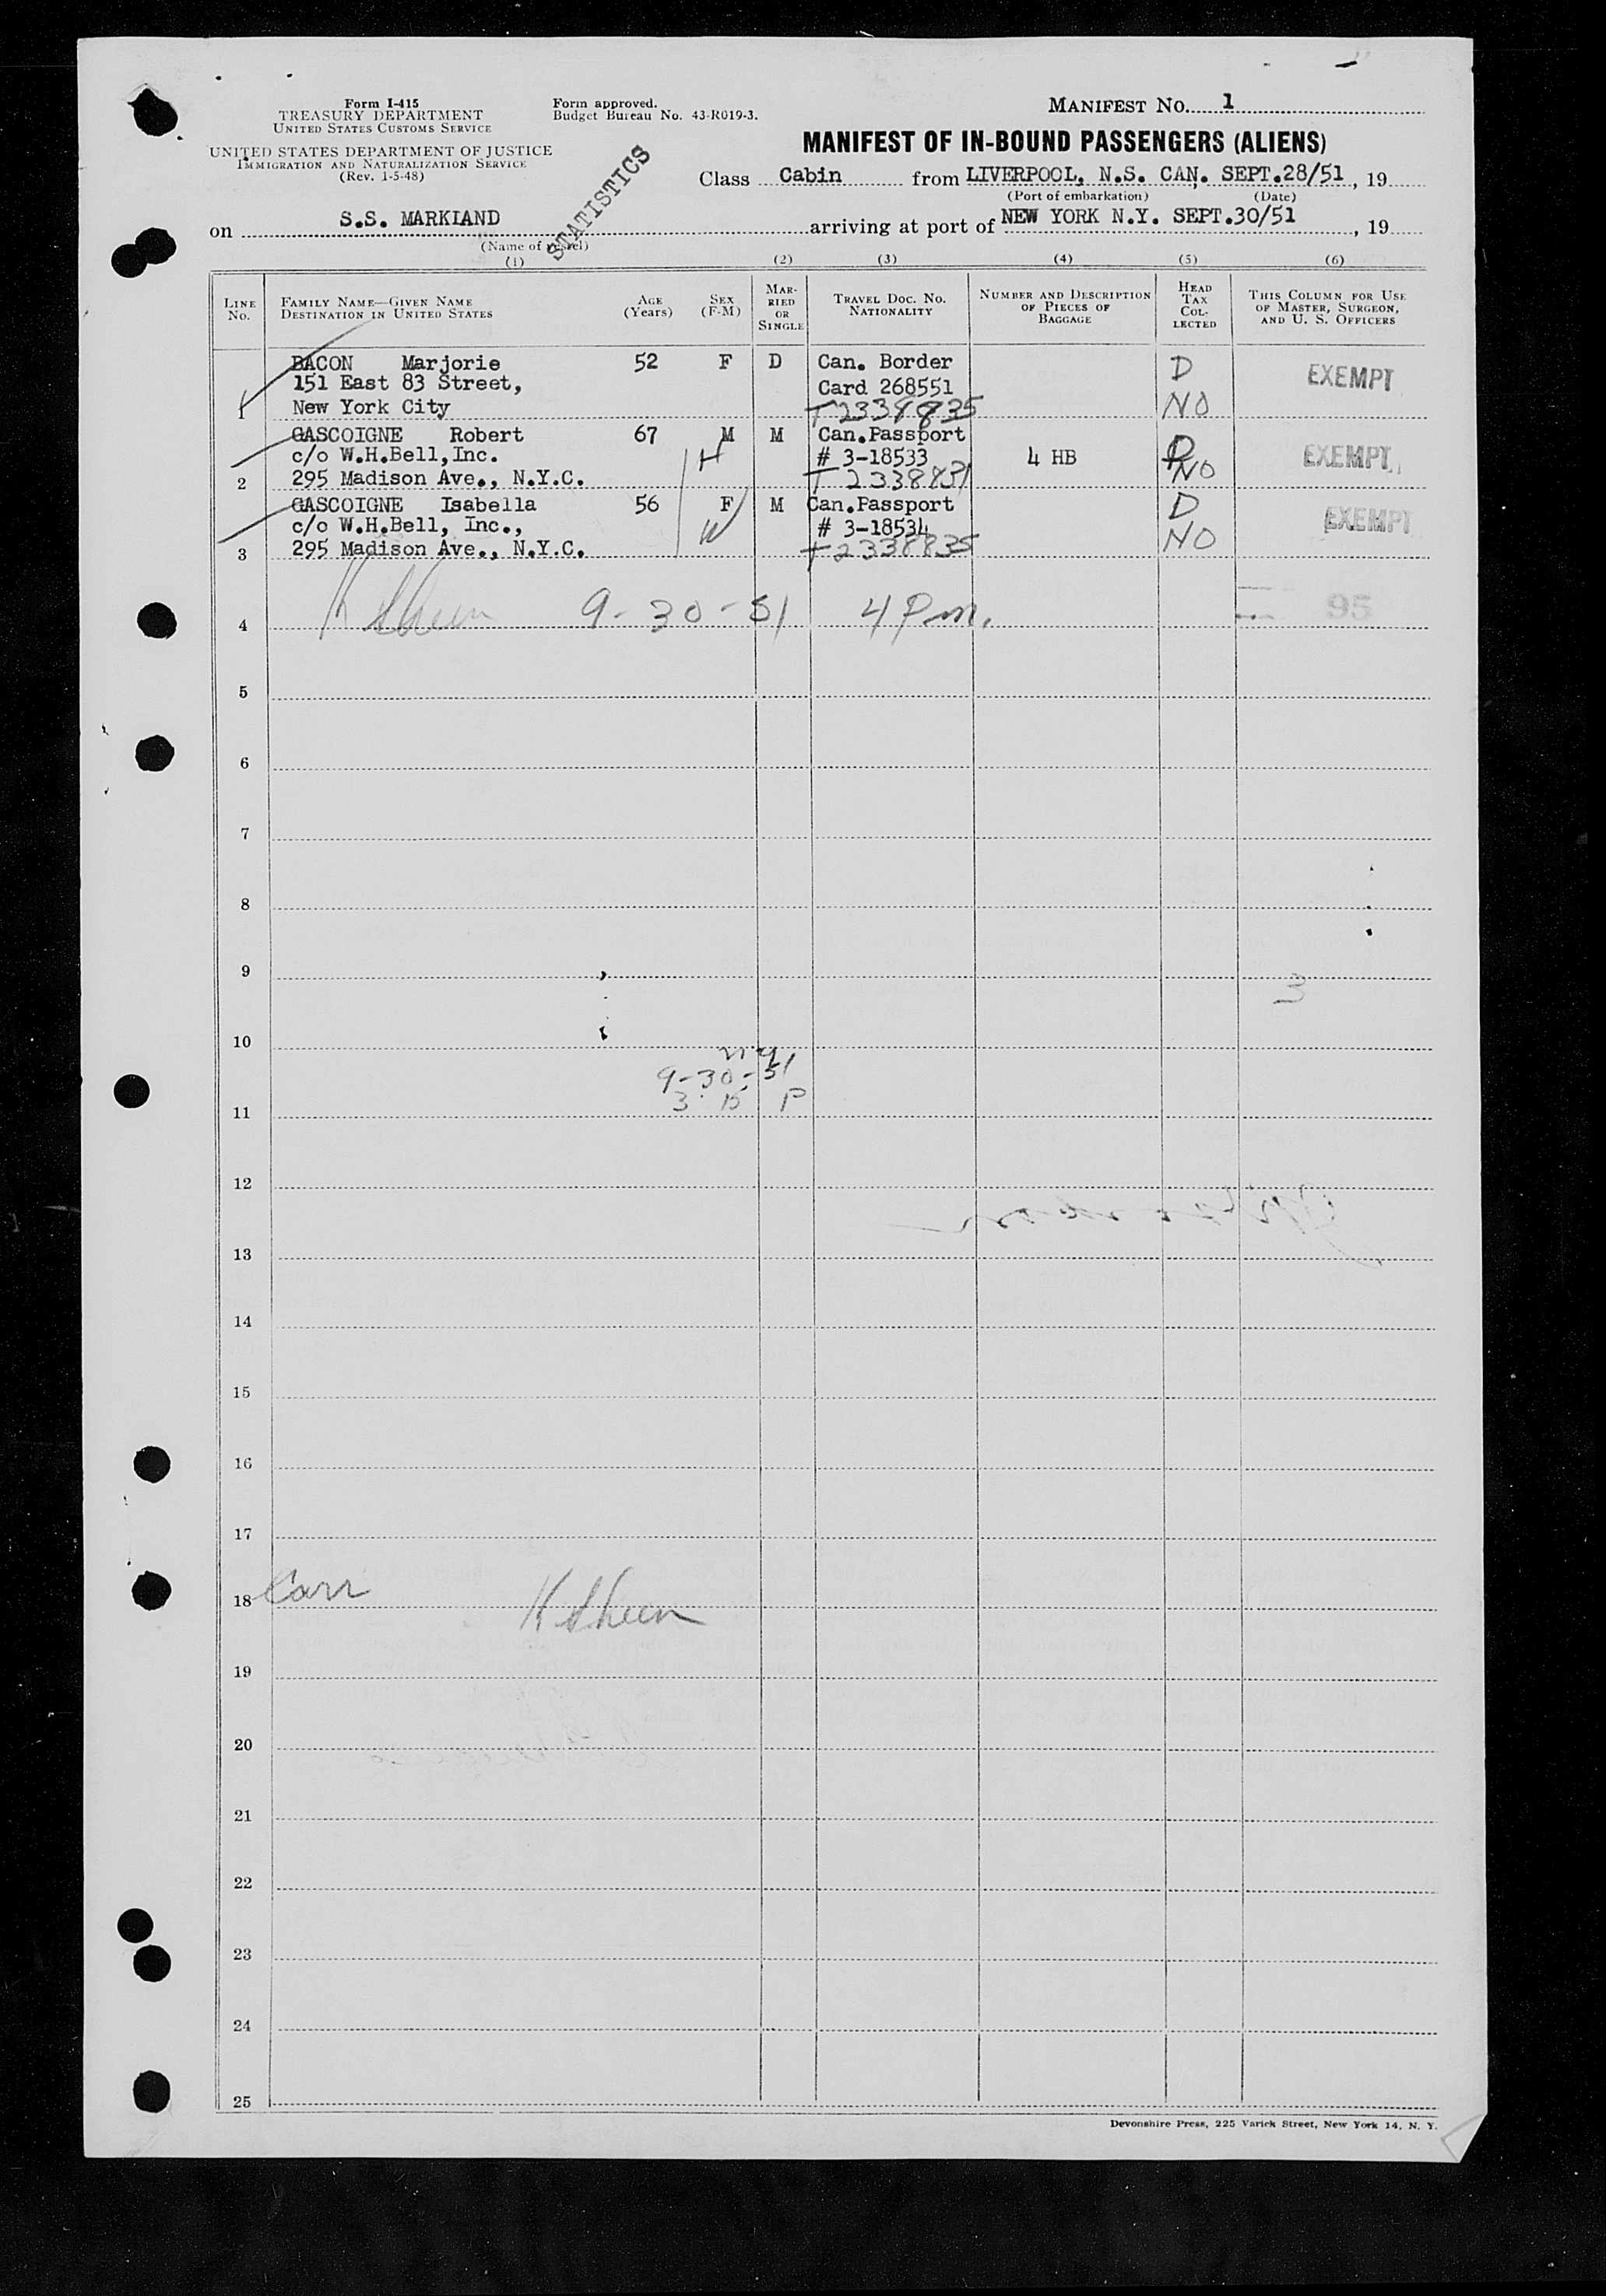 Form I-415
TREASURY DEPARTMENT
UNITED STATES CUSTOMS SERVICE
UNITED STATES DEPARTMENT OF JUSTICE
IMMIGRATION AND NATURALIZATION SERVICE
(Rev. 1-5-48)
Form approved.
Budget Bureau No. 43-R019-3.
STATISTICS
MANIFEST NO. 1
MANIFEST OF IN-BOUND PASSENGERS (ALIENS)
Class Cabin from LIVERPOOL, N.S. CAN. SEPT.28/51, 19
(Port of embarkation) (Date)
on S.S. MARKLAND arriving at port of NEW YORK N.Y. SEPT.30/51, 19
(Name of vessel)
(1) (2) (3) (4) (5) (6)
LINE NO. FAMILY NAME—GIVEN NAME DESTINATION IN UNITED STATES AGE (Years) SEX (F-M) MARRIED OR SINGLE TRAVEL DOC. NO. NATIONALITY NUMBER AND DESCRIPTION OF PIECES OF BAGGAGE HEAD TAX COLLECTED THIS COLUMN FOR USE OF MASTER, SURGEON, AND U. S. OFFICERS
BACON Marjorie 52 F D Can. Border D EXEMPT
151 East 83 Street, Card 268551
1 New York City NO
GASCOIGNE Robert 67 M M Can.Passport D EXEMPT
c/o W.H.Bell,Inc. H # 3-18533 4 HB NO
2 295 Madison Ave., N.Y.C. T 2338831
GASCOIGNE Isabella 56 F M Can.Passport D EXEMPT
c/o W.H.Bell, Inc., W # 3-18534
3 295 Madison Ave., N.Y.C. T 2338835 NO
4 K Sheen 9-30-51 4 Pm. 95
5
6
7
8
9
3
10
ny
9-30-51
11 3:15 P
12
13
14
15
16
17
18 Carr K Sheen
19
20
21
22
23
24
25
Devonshire Press, 225 Varick Street, New York 14, N. Y.